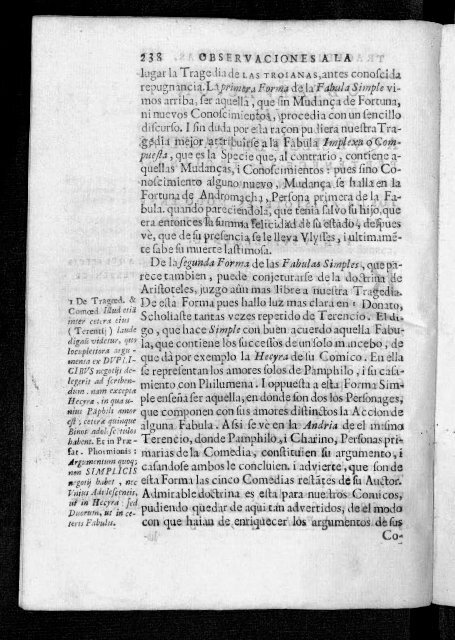 238 OBSERVACIONES A LA
lugar la Tragedia de LAS TROIANAS, antes conoscida
repugnancia. La primera Forma de la Fabula Simple vi-
mos arriba, ser aquella, que sin Mudança de Fortuna,
ni nuevos Conoscimientos, procedia con un sencillo
discurso. I sin duda por esta raçon pudiera nuestra Tra-
gedia mejor attribuirse a la Fabula Implexa o Com-
puesta, que es la Specie que, al contrario, contiene a-
quellas Mudanças, i Conoscimientos: pues sino Co-
noscimiento alguno nuevo, Mudança se halla en la
Fortuna de Andromacha, Persona primera de la Fa-
bula. quando pareciendola, que tenia salvo su hijo, que
era entonces la summa felicidad de su estado, despues
ve, que de su presencia se le lleva Ulysses, i ultimamẽ-
te sabe su muerte lastimosa.
De la segunda Forma de las Fabulas Simples, que pa-
rece tambien, puede conjeturarse de la doctrina de
Aristoteles, juzgo aũn mas libre a nuestra Tragedia.
De esta Forma pues hallo luz mas clara en 1 Donato,
Scholiaste tantas vezes repetido de Terencio. El di-
go, que hace Simple con buen acuerdo aquella Fabu-
la, que contiene los successos de un solo mancebo, de
que dà por exemplo la Hecyra de su Comico. En ella
se representan los amores solos de Pamphilo, i su casa-
miento con Philumena. I oppuesta a esta Forma Sim-
ple enseña ser aquella, en donde son dos los Personages,
que componen con sus amores distinctos la Accion de
alguna Fabula. Assi se vè en la Andria de el mismo
Terencio, donde Pamphilo, i Charino, Personas pri-
marias de la Comedia, constituien su argumento, i
casandose ambos le concluien. i advierte, que son de
esta Forma las cinco Comedias restãtes de su Auctor.
Admirable doctrina es esta para nuestros Comicos,
pudiendo quedar de aqui tan advertidos, de el modo
con que haian de enriquecer los argumentos de sus
Co-
1 De Tragœd. &
Comœd. Illud etiã
inter cetera eius
(Terentij) laude
digna videtur, quod
locupletiora argu-
menta ex DUPLI-
CIBUS negotijs de-
legerit ad scriben-
dum. nam excepta
Hecyra, in qua u-
nius Paphili amor
est; ceteræ quinque
Binos adolescentulos
habent. Et in Præ-
fat. Phormionis:
Argumentum quoq;
non SIMPLICIS
negotij habet, nec
Unius Adolescentis,
ut in Hecyra: sed
Duorum, ut in ce-
teris Fabulis.